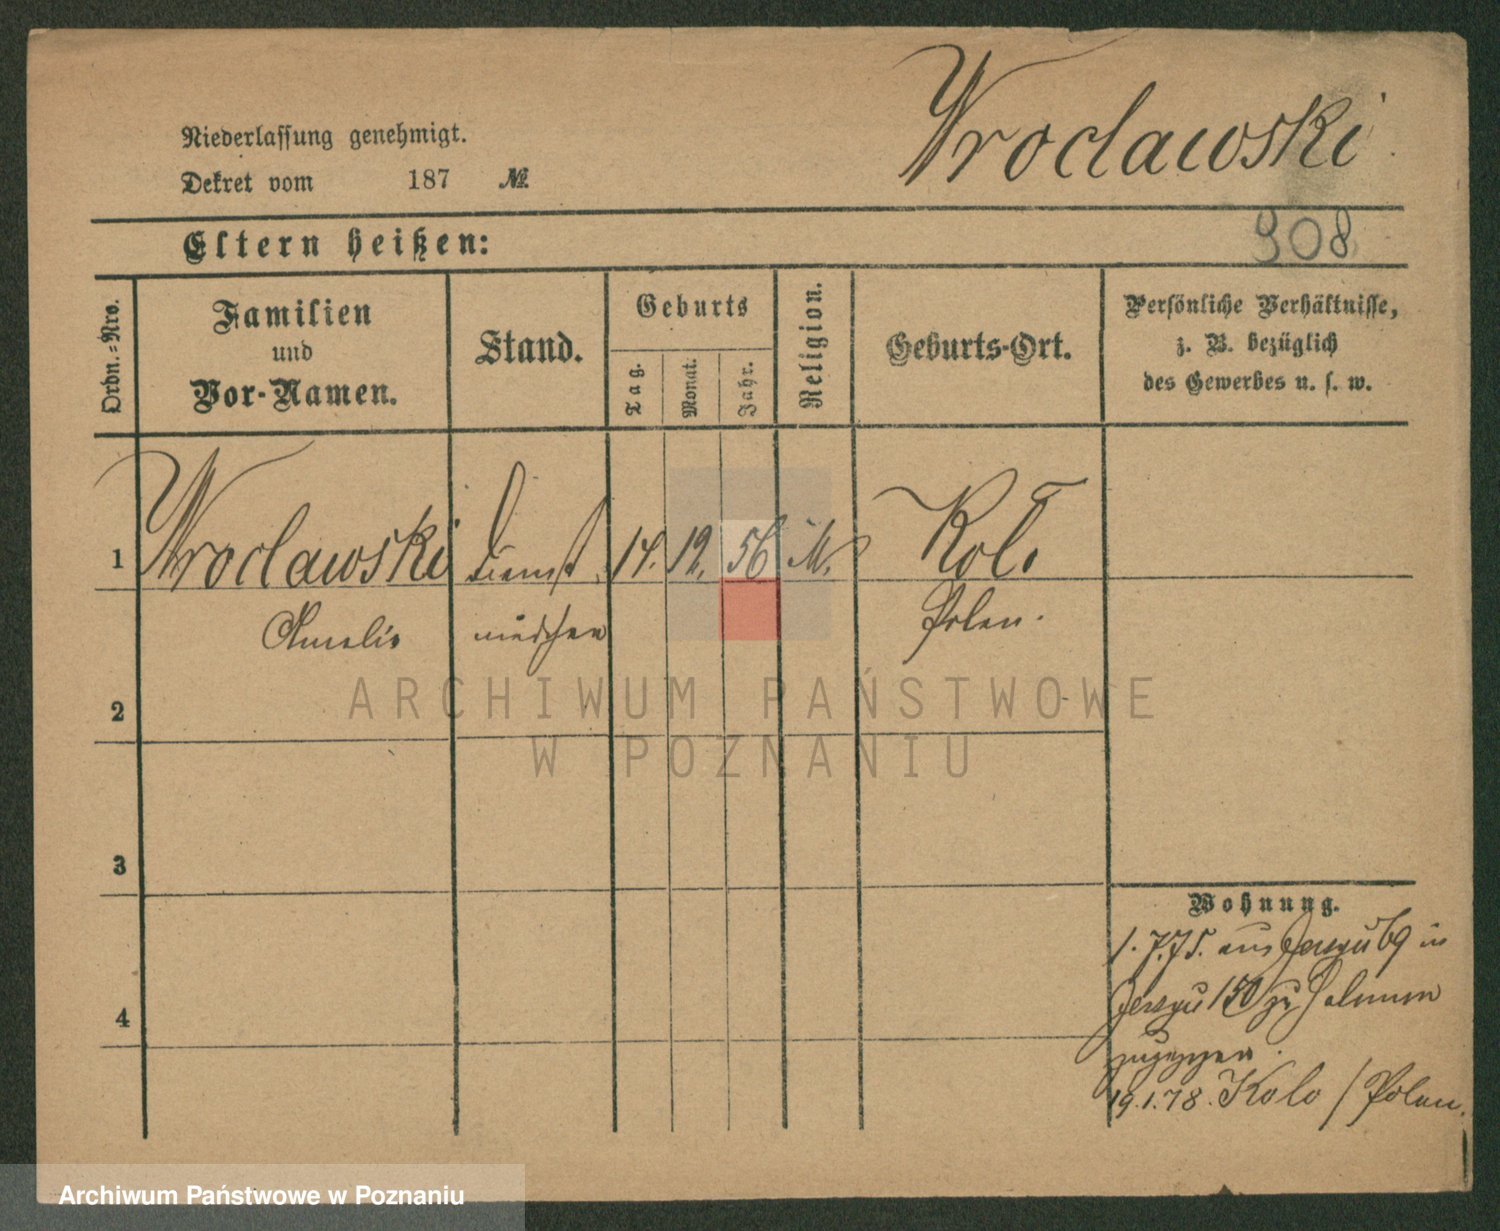 Wroclawski
Niederlassung genehmigt.
Dekret vom 187 №
908
Eltern heißen:
Ordn.=Nro.
Familien
und
Vor-Namen.
Stand.
Geburts
Tag.
Monat.
Jahr.
Religion.
Geburts-Ort.
Persönliche Verhältnisse,
z. B. bezüglich
des Gewerbes u. s. w.
1 Wroclawski Dienst 14. 12. 56 M. Kolo
Amelie mädchen Polen.
ARCHIWUM PAŃSTWOWE
2
W POZNANIU
3
Wohnung.
1. 7. 75. aus 69 in
150 zu
4
zugezogen.
19.1.78. Kolo / Polen.
Archiwum Państwowe w Poznaniu